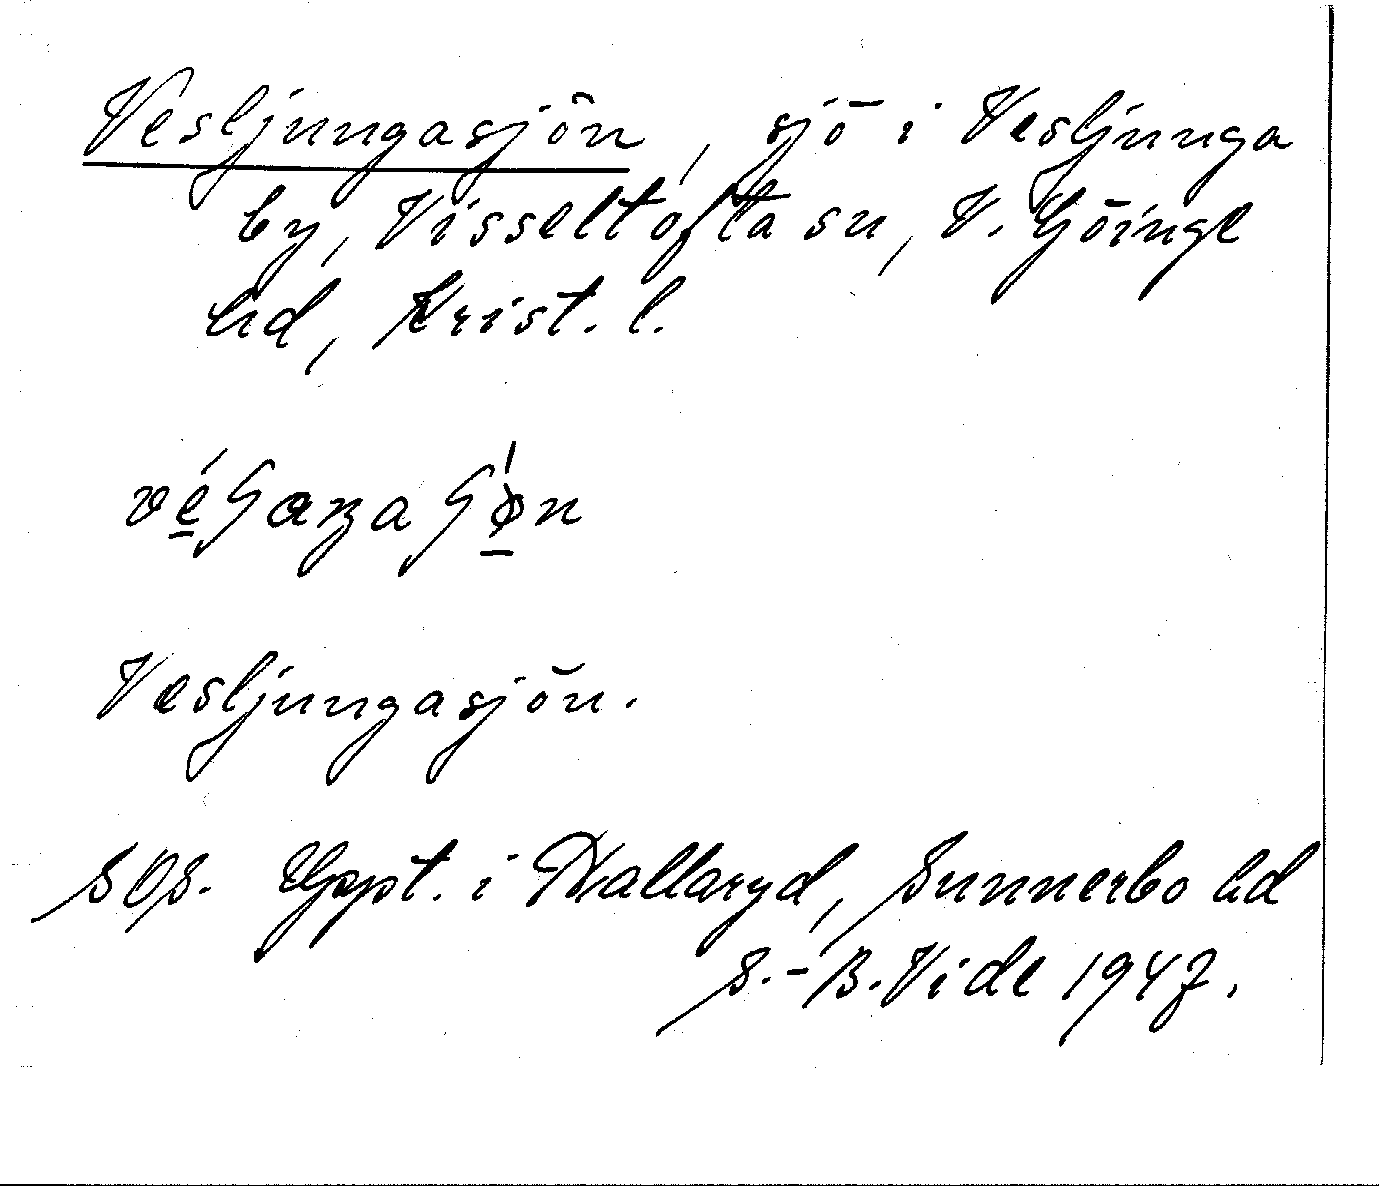 Vesljungasjön, sjö i Vesljunga
by, Visseltofta sn, V. Göinge
hd, Krist. l.
Vesljungasjön.
SOS. Uppt. i Hallaryd, Sunnerbo hd
S.-B. Vide 1947.